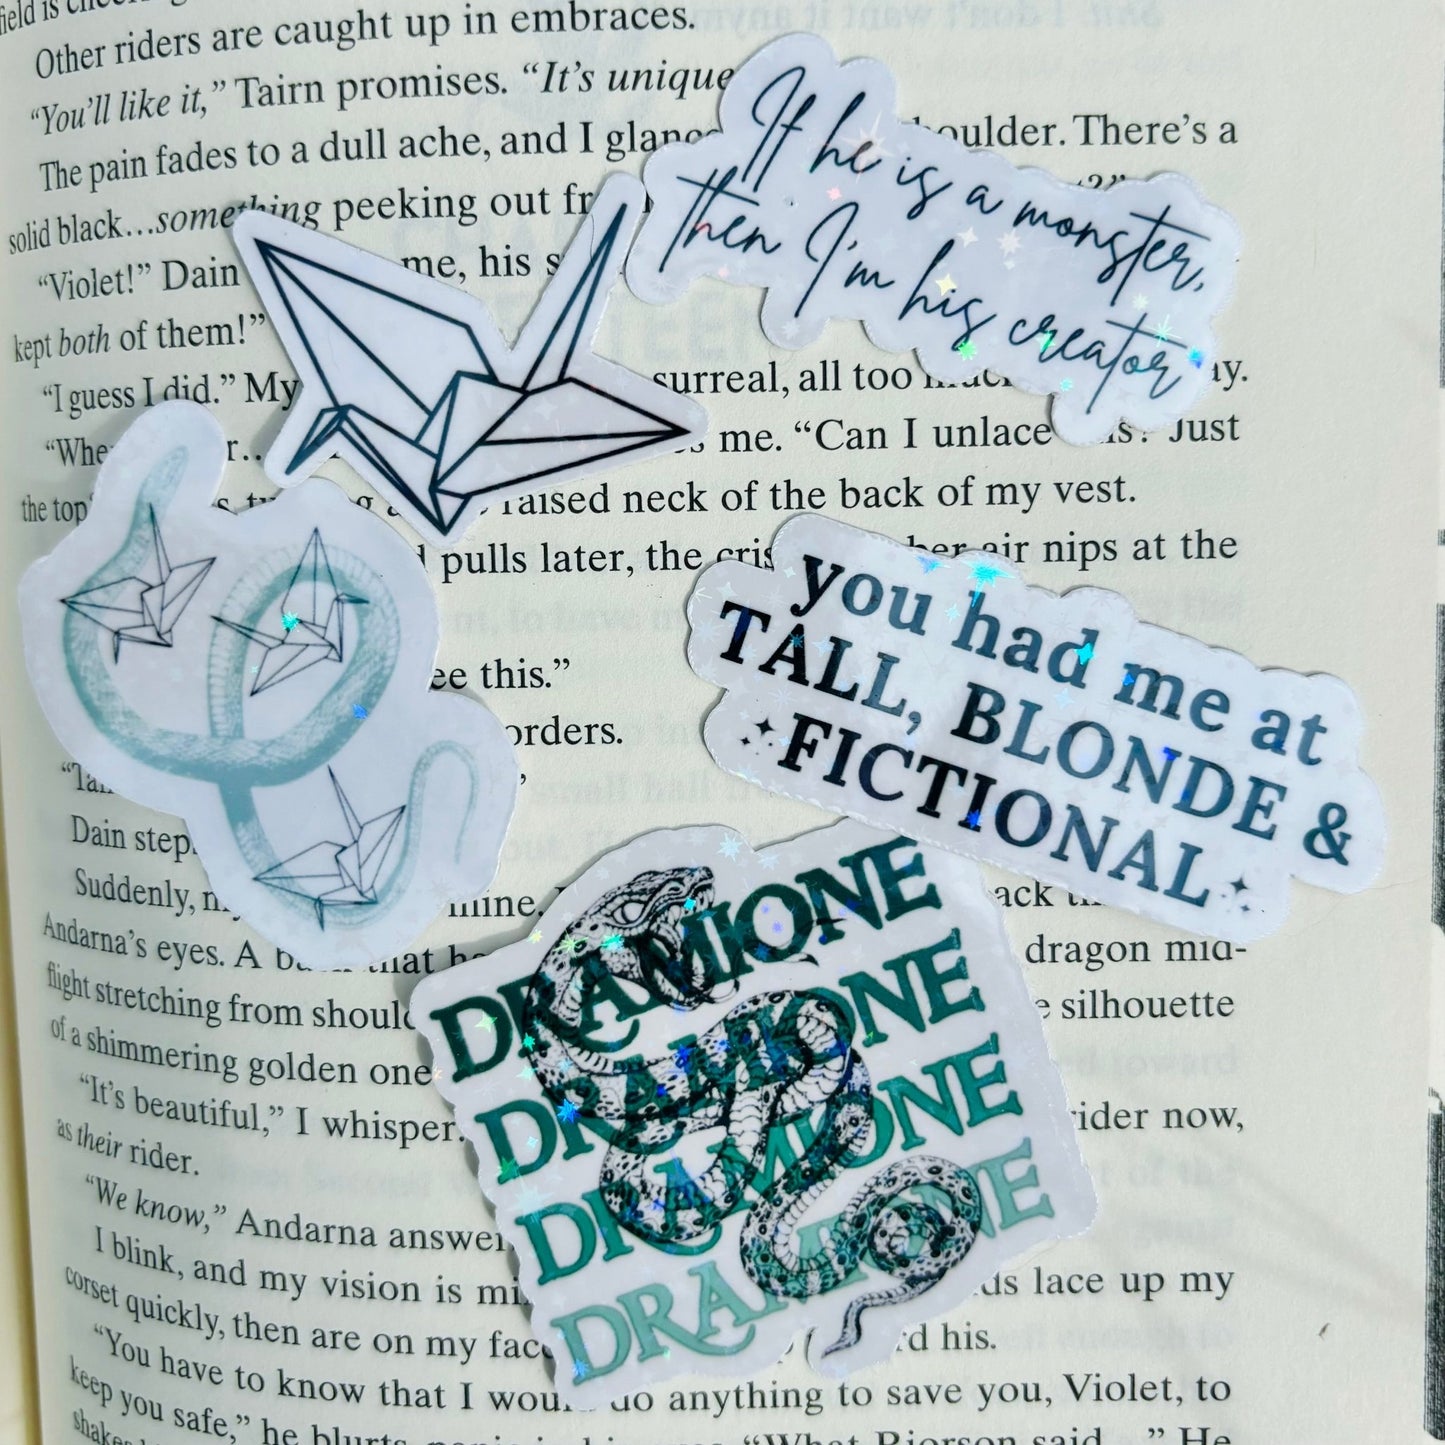 field is
Other riders are caught up in embraces.
“You’ll like it,” Tairn promises. “It’s unique
The pain fades to a dull ache, and I shoulder. There’s a
solid black…something peeking out
“Violet!” Dain me, his
kept both of them!”
“I guess I did.” My surreal, all too
me. “Can I unlace Just
the top raised neck of the back of my vest.
pulls later, the air nips at the
see this.”
orders.
Dain
Suddenly, mine.
Andarna’s eyes. A that dragon mid-
flight stretching from silhouette
of a shimmering golden one
“It’s beautiful,” I whisper. rider now,
as their rider.
“We know,” Andarna
I blink, and my vision is lace up my
corset quickly, then are on my his.
“You have to know that I would do anything to save you, Violet, to
keep you safe,” he blurts, “What Riorson said…” He
If he is a monster,
then I’m his creator
you had me at
TALL, BLONDE &
FICTIONAL
DRAMIONE
DRAMIONE
DRAMIONE
DRAMIONE